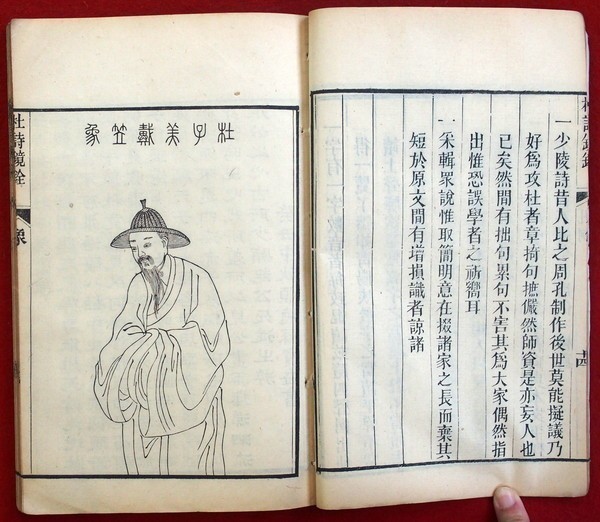 一少陵詩昔人比之周孔制作後世莫能擬議乃
好爲攻杜者章掎句摭儼然師資是亦妄人也
已矣然間有拙句累句不害其爲大家偶然指
出惟恐誤學者之祈嚮耳
一采輯眾說惟取簡明意在掇諸家之長而棄其
短於原文間有增損識者諒諸
杜子美戴笠象
杜詩鏡銓
像